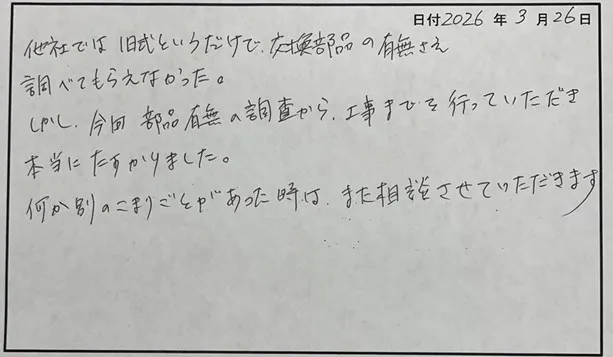 日付2026年3月26日
他社では旧式というだけで、交換部品の有無さえ
調べてもらえなかった。
しかし、今回部品有無の調査から、工事までを行っていただき
本当にたすかりました。
何か別のこまりごとがあった時は、また相談させていただきます